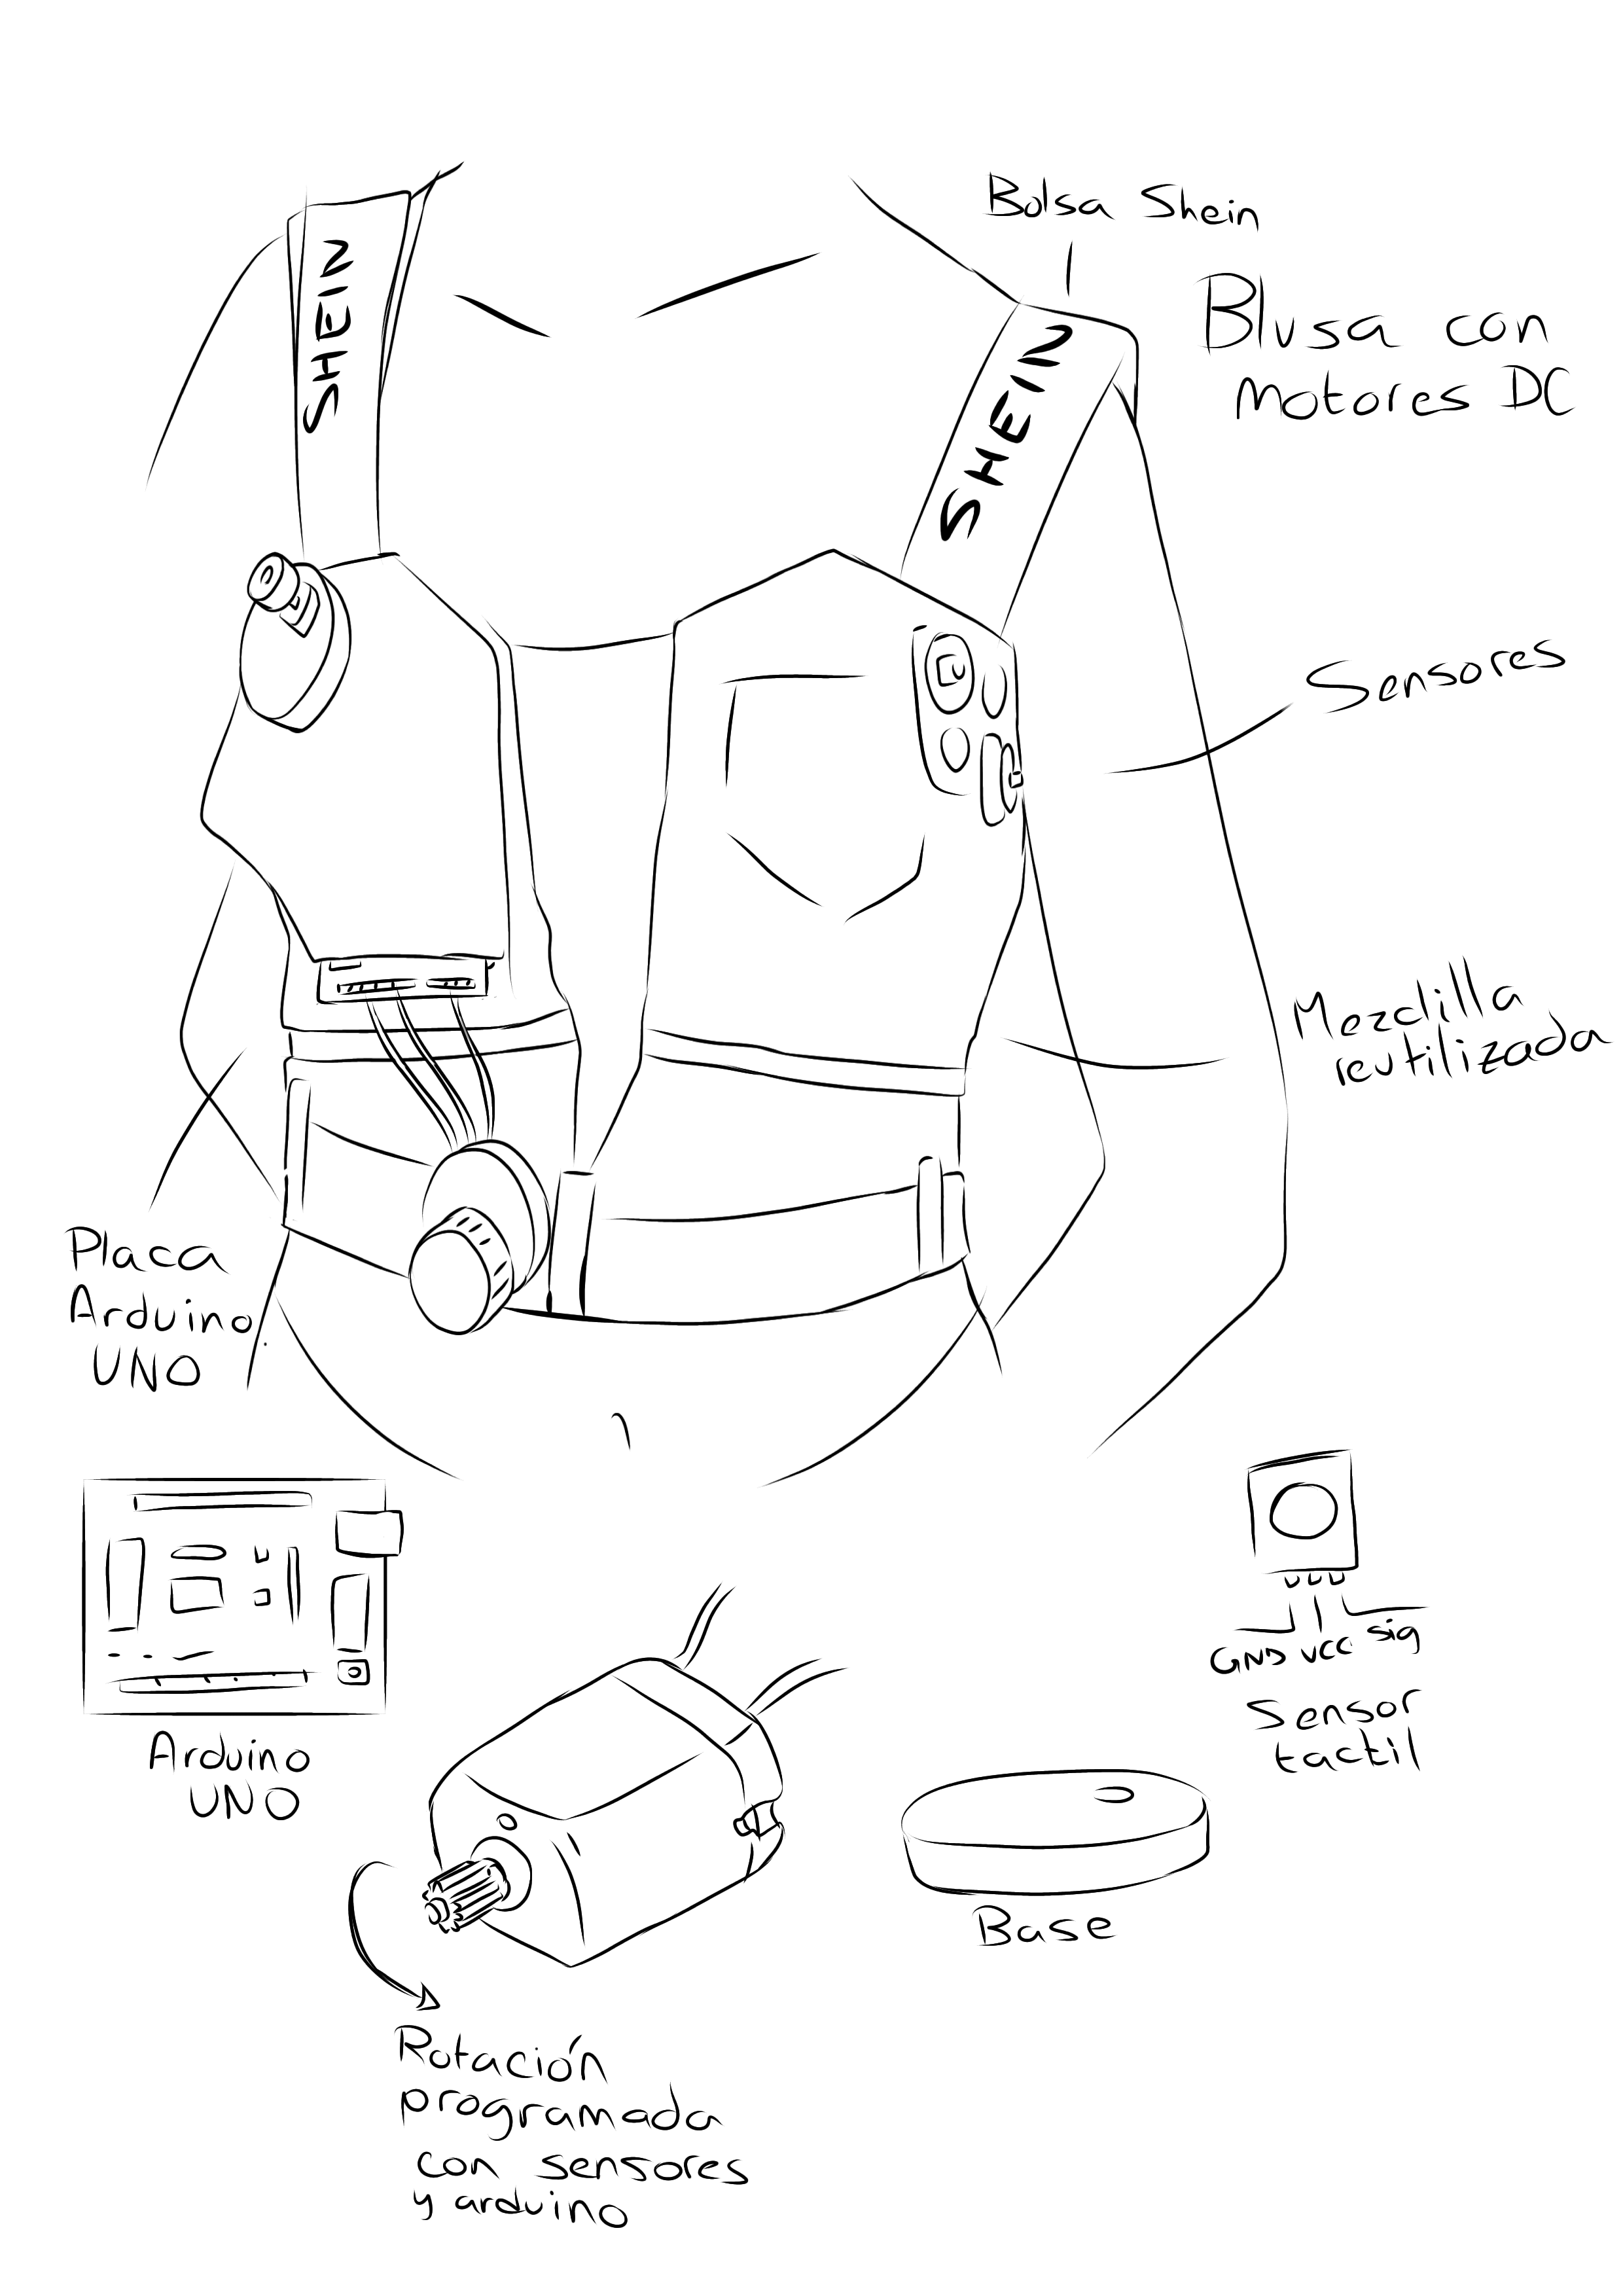 Bolsa Shein
SHEIN
SHEIN
Blusa con
Motores DC
Sensores
Mezclilla
reutilizada
Placa
Arduino
UNO
Arduino
UNO
GND VCC sig
Sensor
tactil
Base
Rotación
programada
con sensores
y arduino